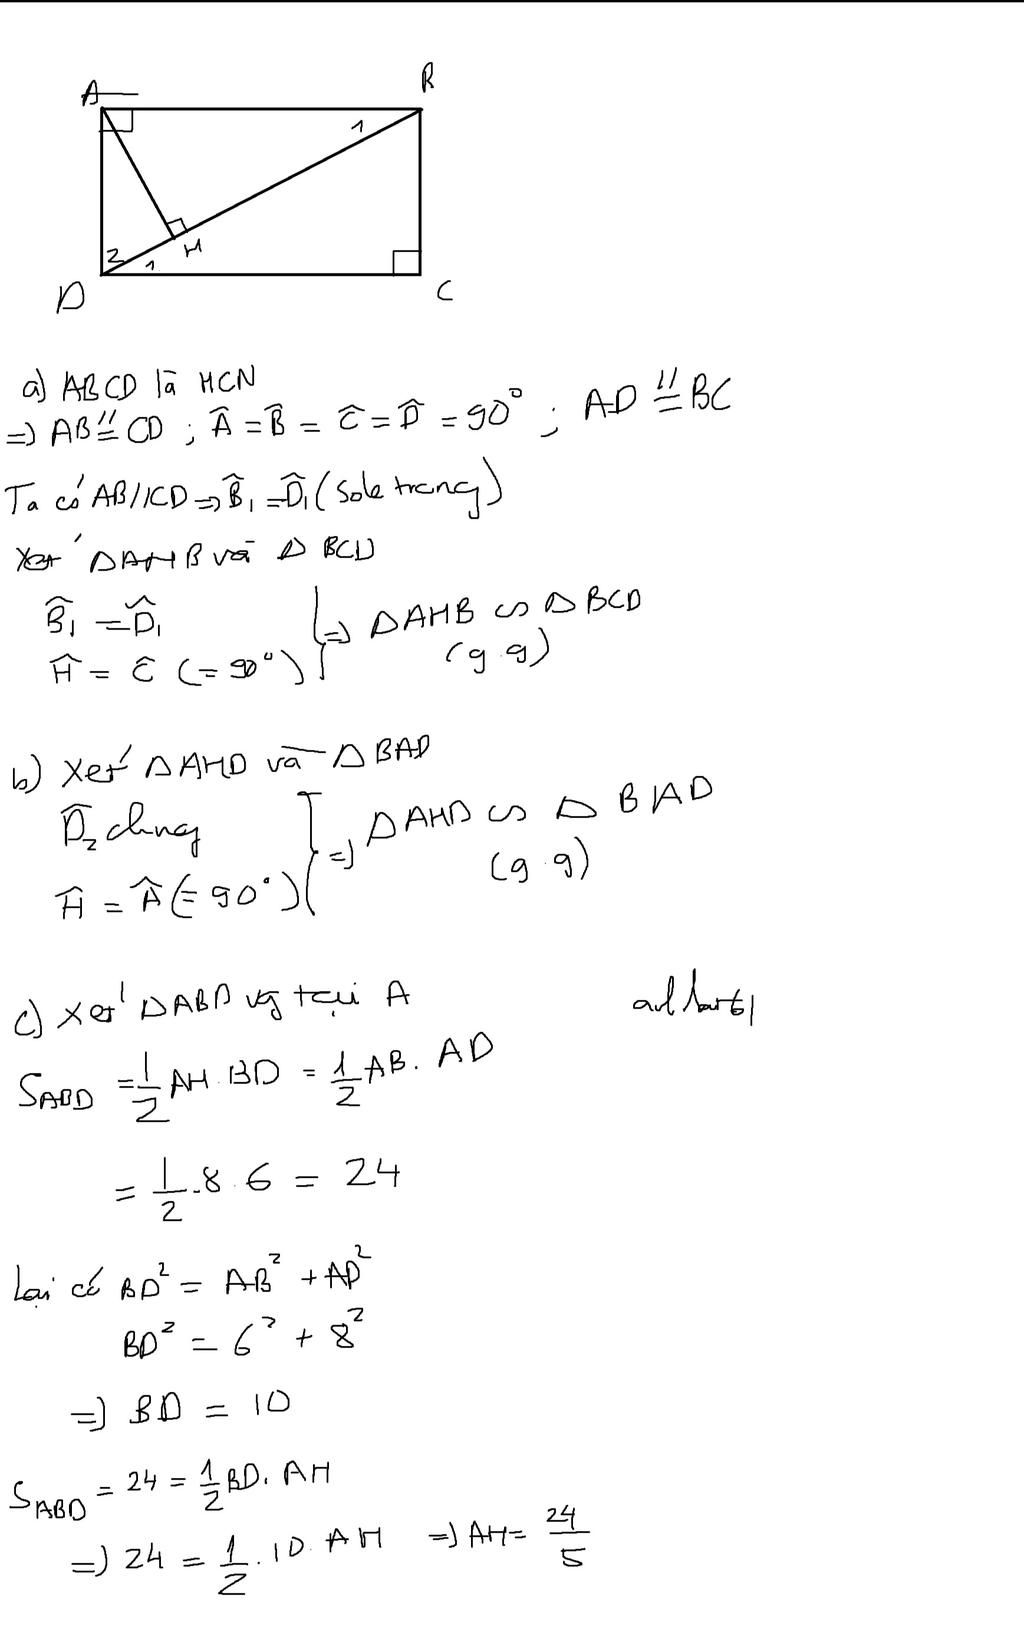 A B
1
2 1 H
D C
a) ABCD là HCN
=> AB //= CD ; Â = B̂ = Ĉ = D̂ = 90° ; AD //= BC
Ta có AB//CD => B̂₁ = D̂₁ (sole trong)
Xét ΔAHB và Δ BCD
B̂₁ = D̂₁
Ĥ = Ĉ (= 90°) } => ΔAHB ∽ Δ BCD (g.g)
b) Xét ΔAHD và Δ BAD
D̂₂ chung
Ĥ = Â (= 90°) } => ΔAHD ∽ Δ BAD (g.g)
c) Xét ΔABD vg tại A
S_ABD = 1/2 AH . BD = 1/2 AB . AD
= 1/2 . 8 . 6 = 24
Lại có BD² = AB² + AD²
BD² = 6² + 8²
=> BD = 10
S_ABD = 24 = 1/2 BD . AH
=> 24 = 1/2 . 10 . AH => AH = 24/5